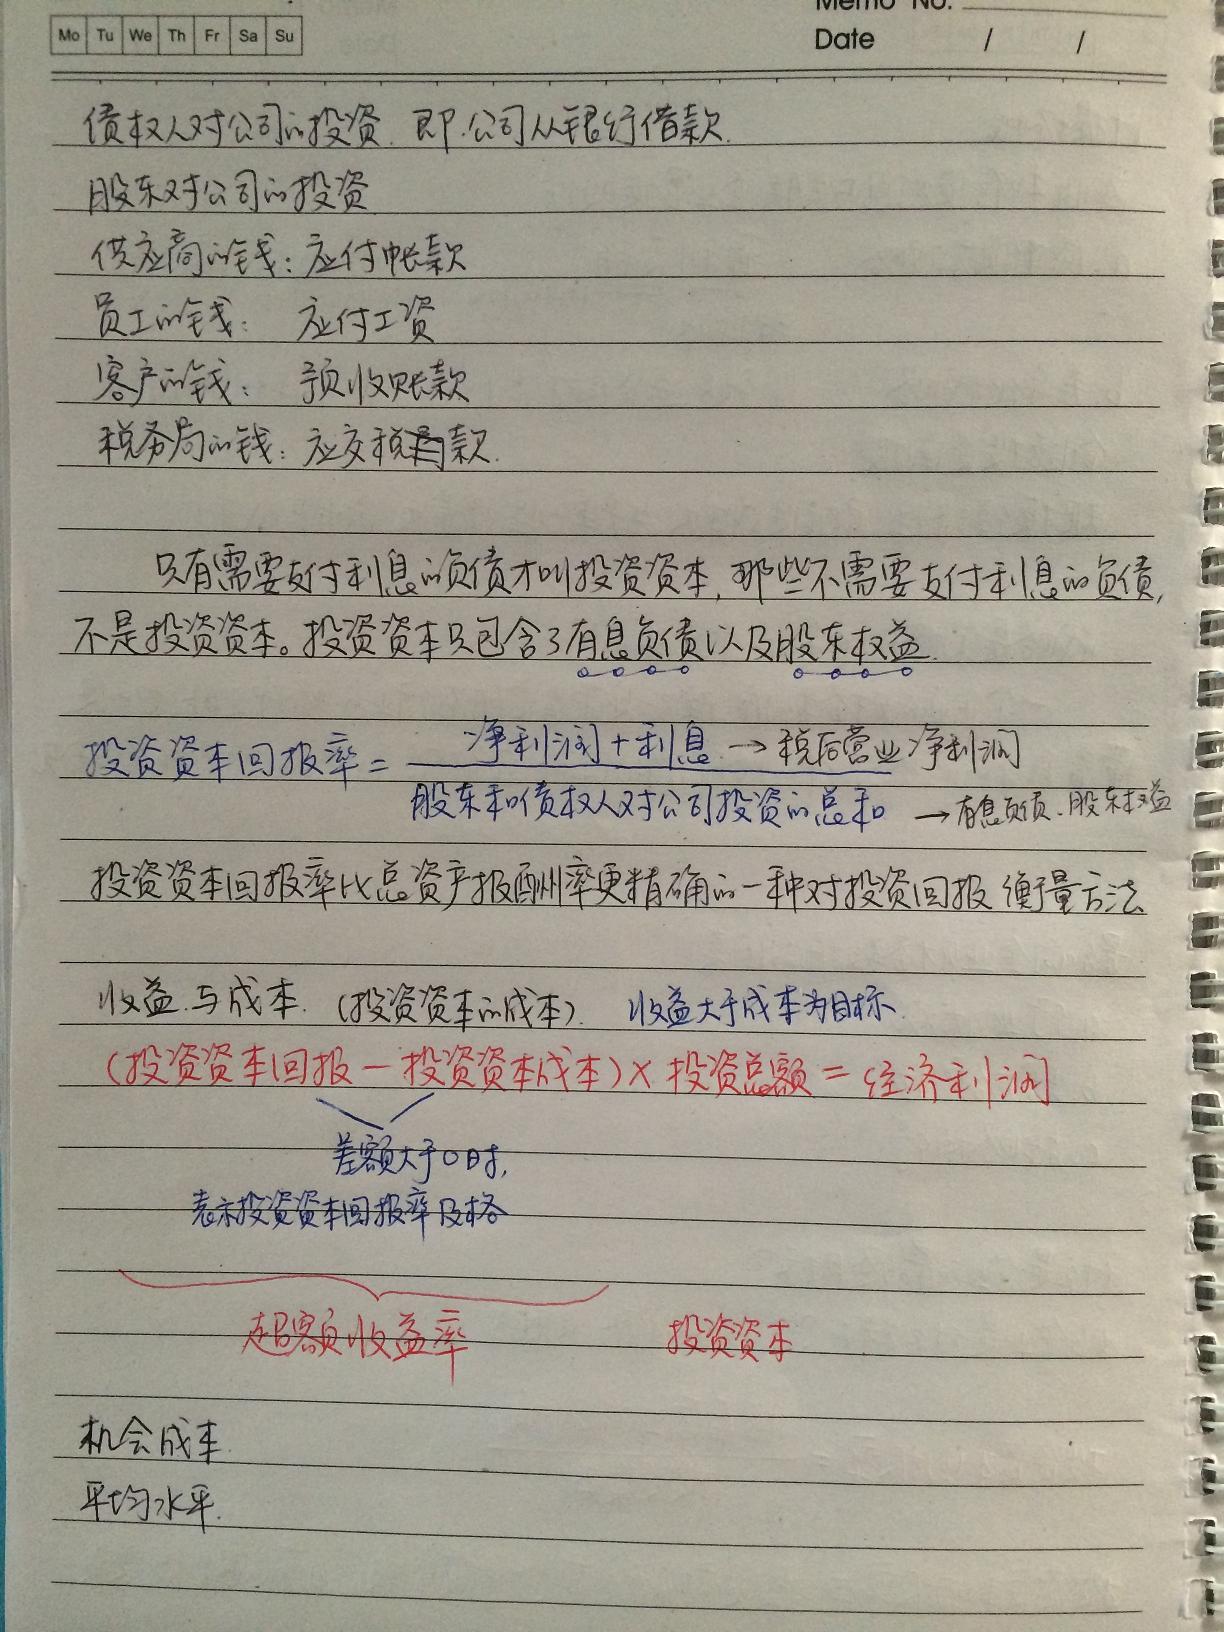 Memo No.
Mo Tu We Th Fr Sa Su
Date / /
债权人对公司的投资. 即.公司从银行借款.
股东对公司的投资
供应商的钱: 应付帐款
员工的钱: 应付工资
客户的钱: 预收账款
税务局的钱: 应交税款.
只有需要支付利息的负债才叫投资资本, 那些不需要支付利息的负债,
不是投资资本。投资资本只包含了有息负债以及股东权益.
净利润+利息 → 税后营业净利润
投资资本回报率=
股东和债权人对公司投资的总和 → 有息负债.股东权益
投资资本回报率比总资产报酬率更精确的一种对投资回报衡量方法
收益.与成本. (投资资本的成本). 收益大于成本为目标.
(投资资本回报-投资资本成本)×投资总额=经济利润
差额大于0时,
表示投资资本回报率及格
超额收益率 投资资本
机会成本.
平均水平.